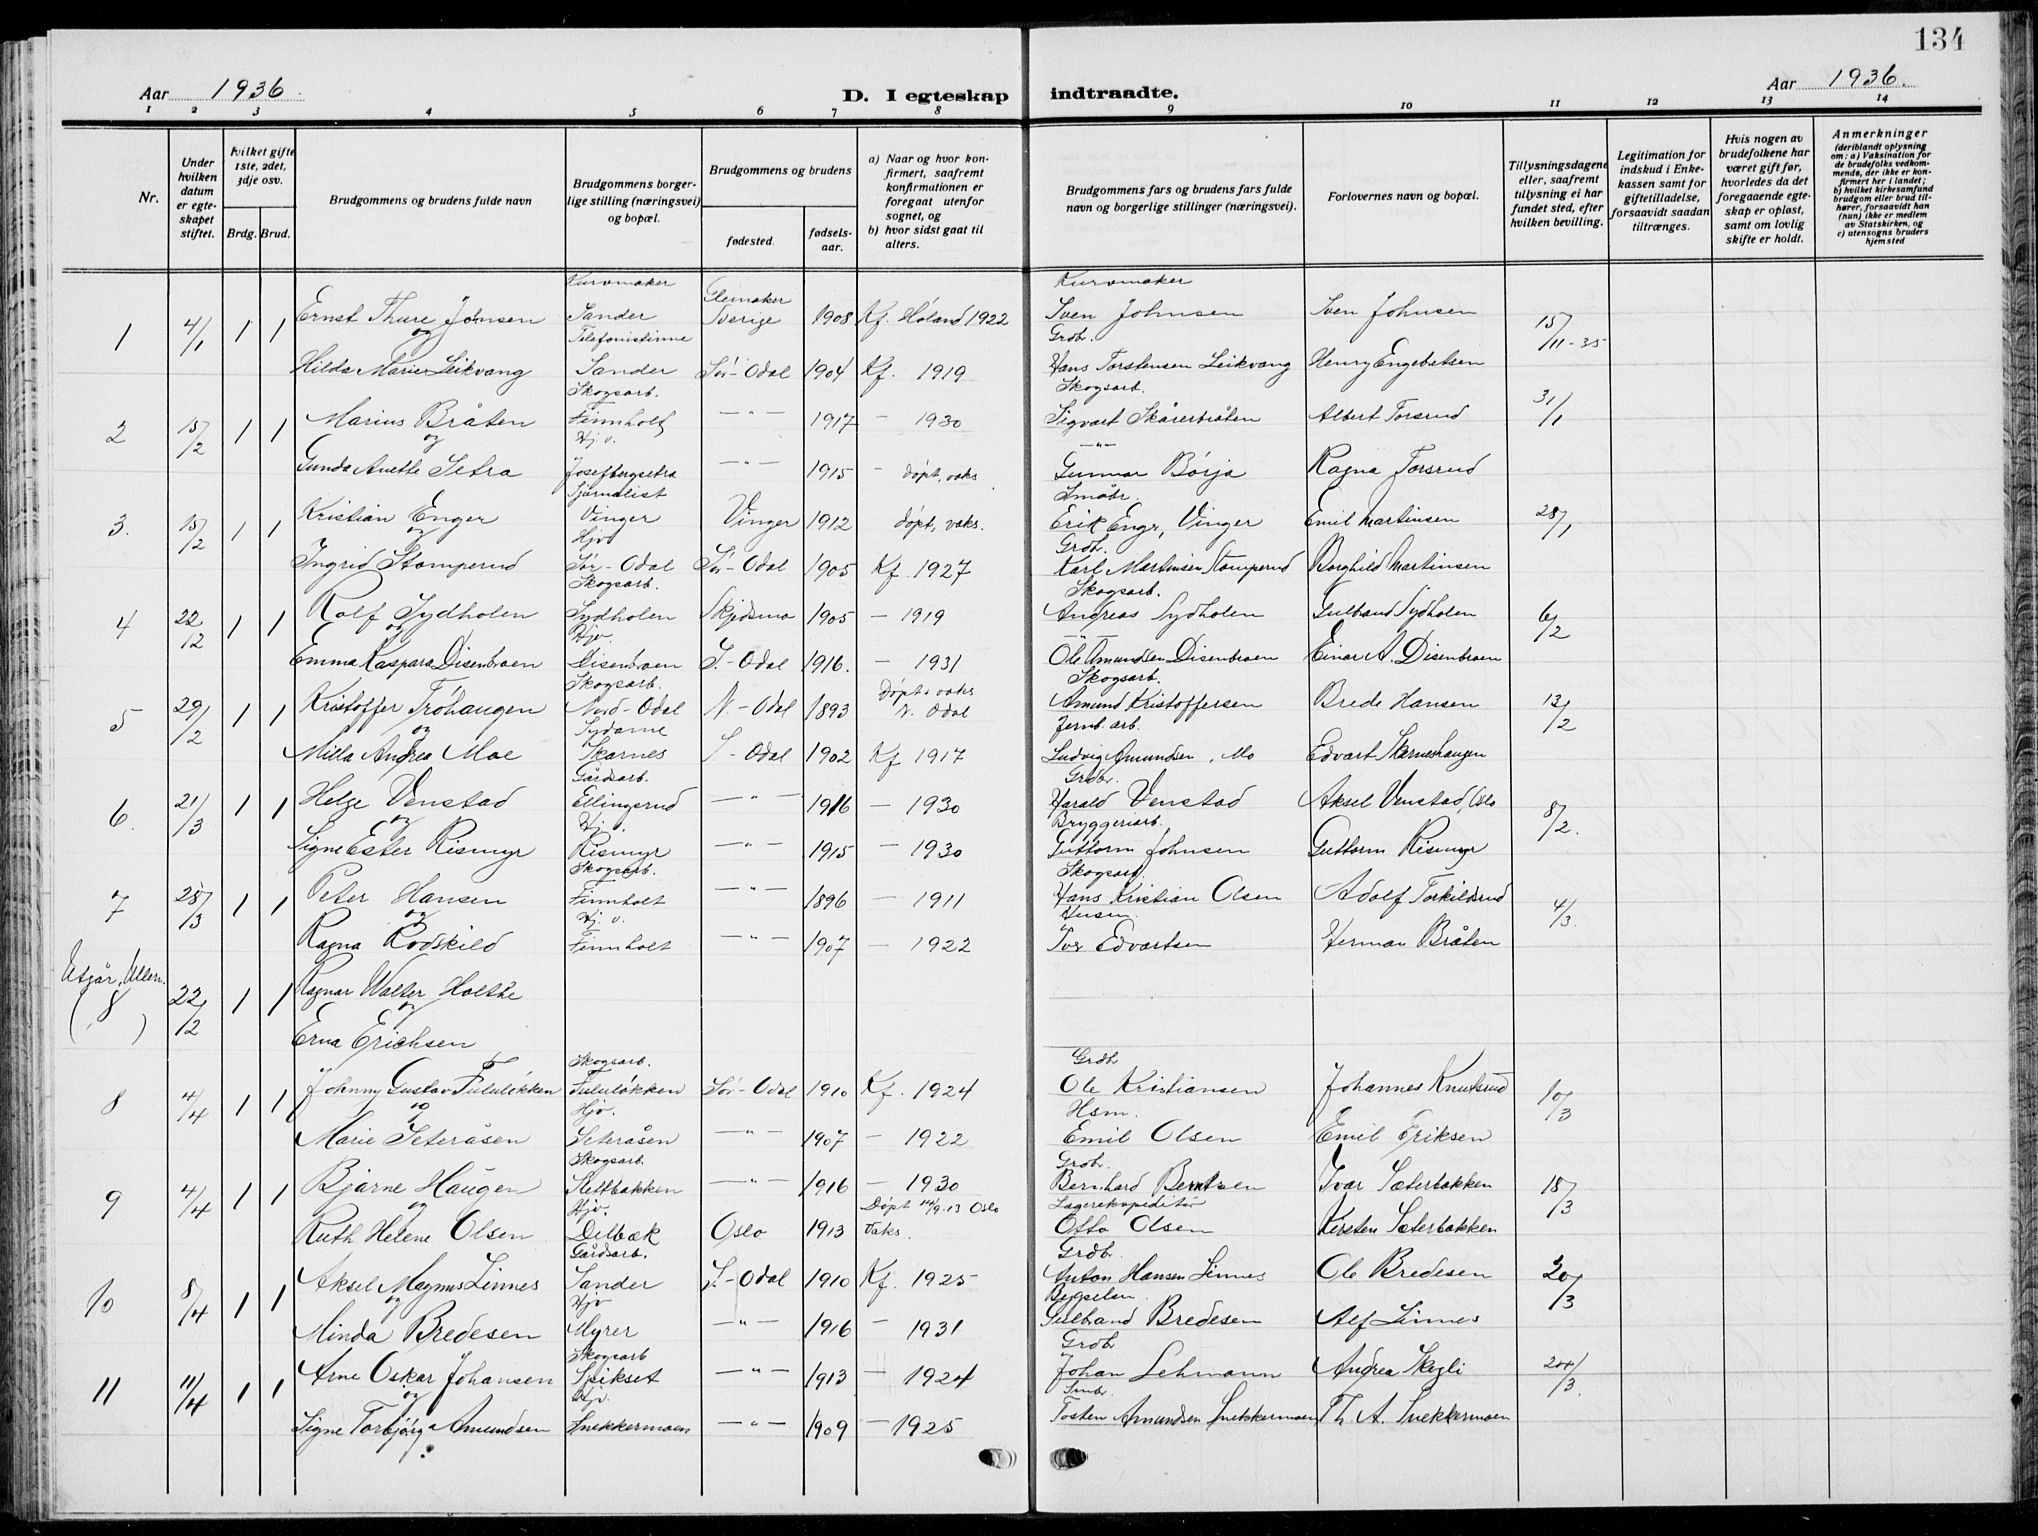 134
Aar 1936.
D. I egteskap indtraadte.
Aar 1936.
1 2 3 4 5 6 7 8 9 10 11 12 13 14
Nr.
Under hvilken datum er egteskapet stiftet.
Hvilket gifte 1ste, 2det, 3dje osv.
Brdg. Brud.
Brudgommens og brudens fulde navn
Brudgommens borgerlige stilling (næringsvei) og bopæl.
Brudgommens og brudens
fødested.
fødselsaar.
a) Naar og hvor konfirmert, saafremt konfirmationen er foregaat utenfor sognet, og
b) hvor sidst gaat til alters.
Brudgommens fars og brudens fars fulde navn og borgerlige stillinger (næringsvei).
Forlovernes navn og bopæl.
Tillysningsdagene eller, saafremt tillysning ei har fundet sted, efter hvilken bevilling.
Legitimation for indskud i Enkekassen samt for giftetilladelse, forsaavidt saadan tiltrænges.
Hvis nogen av brudefolkene har været gift før, hvorledes da det foregaaende egteskap er opløst, samt om lovlig skifte er holdt.
Anmerkninger (deriblandt oplysning om: a) Vaksination for de brudefolks vedkommende, der ikke er konfirmert her i landet; b) hvilket kirkesamfund brudgom eller brud tilhører, forsaavidt han (hun) ikke er medlem av Statskirken, og c) utensogns bruders hjemsted
Kurvmaker Glemaker Kurvmaker
1 4/1 1 1 Ernst Thure Johnsen Sander Sverige 1908 Kf. Høland 1922 Sven Johnsen Sven Johnsen 15/11-35
og Telefonistinne Grdb.
Hilda Marie Leikvang Sander Sør-Odal 1904 Kf. 1919 Hans Torstensen Leikvang Henry Engebetsen
Skogsarb. Skogsarb.
2 15/2 1 1 Marius Bråten Finnholt —"— 1917 — 1930 Sigvart Skårerbråten Albert Torsrud 31/1
og Hj. v. —"—
Gunda Anette Setra Josefbergsetra —"— 1915 — døpt, vaks Gunnar Børja Ragna Torsrud
Sjurnalist Småbr.
3. 15/2 1 1 Kristian Enger Vinger Vinger 1912 døpt, vaks. Erik Enger, Vinger Emil Martinsen 28/1
og Hjv Grdb.
Ingrid Stomperud Sør-Odal Sør-Odal 1905 Kf. 1927 Karl Martinsen Stomperud Borghild Martinsen
Skogsarb. Skogsarb.
4 22/12 1 1 Rolf Sydholen Sydholen Skjedsmo 1905 — 1919 Andreas Sydholen Gulbrand Sydholen 6/2
og Hjv. —"—
Emma Kaspara Disenbroen Disenbroen S.-Odal 1916. — 1931 Ole Amundsen Disenbroen Einar A. Disenbroen
Skogsarb. Døpt. vaks Skogsarb.
5 29/2 1 1 Kristoffer Trøhaugen Nord-Odal N-Odal 1893 N. Odal Amund Kristoffersen Brede Hansen 13/2
og Sydame Jernb. arb.
Milla Andrea Moe Skarnes S-Odal 1902 Kf 1917 Ludvig Amundsen, Mo Edvart Skarneshaugen
Gårdsarb. Grdbr.
6. 21/3 1 1 Helge Venstad Ellingsrud —"— 1916 — 1930 Harald Venstad Aksel Venstad, Oslo 8/2.
og Hj. v. Bryggeriarb.
Signe Ester Rismyr Rismyr —"— 1915 — 1930 Guttorm Johnsen Guttorm Rismyr
Skogsarb. Skogsarb
7 28/3 1 1 Peter Hansen Finnholt —"— 1896 — 1911 Hans Kristian Olsen Adolf Torkildsrud 4/3.
og Hj. v. Husm.
Ragna Rodskild Finnholt —"— 1907 — 1922 Iver Edvartsen Herman Bråten
Utgår, Ullern.
(8) 22/2 1 1 Ragnar Walter Holthe
og
Erna Erichsen
Skogsarb. Grdb
8 4/4 1 1 Johnny Gustav Fululøkken Fululøkken Sør-Odal 1910 Kf. 1924 Ole Kristiansen Johannes Knutsrud 10/3
og Hjv. Hsm.
Marie Seteråsen Seteråsen —"— 1907 — 1922 Emil Olsen Emil Eriksen
Skogsarb. Grdb.
9 4/4 1 1 Bjarne Haugen Slettbakken —"— 1916 — 1930 Bernhard Berntsen Ivar Sæterbakken 18/3
og Hjv. Døpt 14/9-13 Oslo Lagerekspeditør
Ruth Helene Olsen Delbæk Oslo 1913 Vaks. Otto Olsen Kirsten Sæterbakken
Gårdsarb. Grdb.
10 8/4 1 1 Aksel Magnus Linnes Sander S-Odal 1910 Kf. 1925 Anton Hansen Linnes Ole Bredesen 20/3
og Hjv Bygselm.
Minda Bredesen Myrer —"— 1916 — 1931 Gulbrand Bredesen Alf Linnes
Skogsarb Grdb
11 11/4 1 1 Arne Oskar Johansen Spikset —"— 1913 — 1924 Johan Lehmann Andrea Skegli 24/3.
og Hjv. Smbr.
Signe Torbjørg Amundsen Snekkermoen —"— 1909 — 1925 Tosten Amundsen Snekkermoen Th. A. Snekkermoen